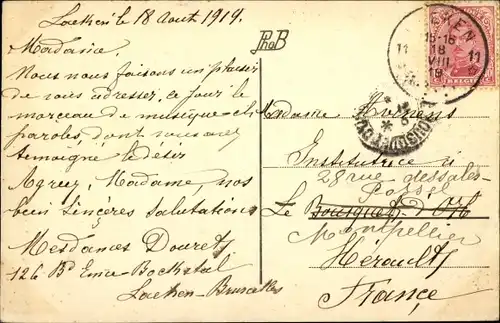 Laeken le 18 Aout 1919.
Madame,
Nous nous faisons un plaisir
de vous adresser, ce jour le
morceau de musique et
paroles, dont vous avez
témoigné le désir
Agréez, Madame, nos
bien sincères salutations
Mesdames Dourets
126 Bd Emile Bockstael
Laeken-Bruxelles
PhoB
KEN
15-16
11 18 11
VIII
19
Madame
Institutrice à
28 rue
Le Bousquet d'Orb
Montpellier
Hérault
France